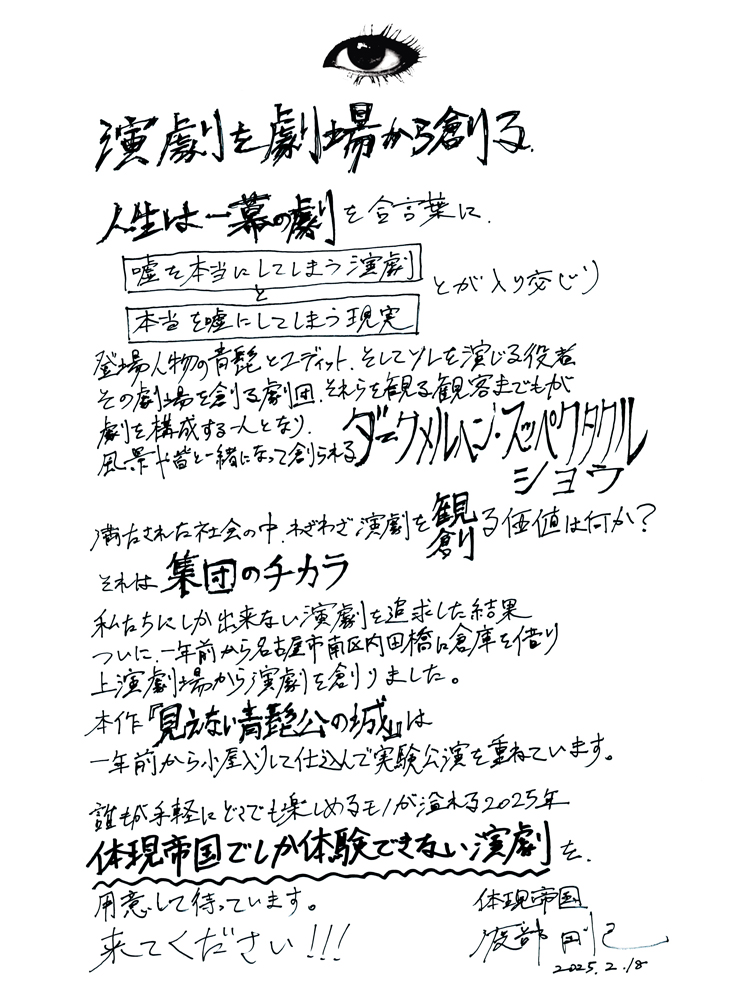 演劇を劇場から創る.
人生は一幕の劇を合言葉に.
嘘を本当にしてしまう演劇
と
本当を嘘にしてしまう現実
とが入り交じり
登場人物の青髭とユディット、そしてソレを演じる役者
その劇場を創る劇団、それらを観る観客までもが
劇を構成する一人となり、
風景や皆と一緒になって創られるダークメルヘン・スッペクタクル
ショウ
満たされた社会の中、わざわざ演劇を観る価値は何か?
創
それは集団のチカラ
私たちにしか出来ない演劇を追求した結果
ついに、一年前から名古屋市南区内田橋に倉庫を借り
上演劇場から演劇を創りました。
本作『見えない青髭公の城』は
一年前から小屋入りして仕込んで実験公演を重ねています。
誰もが手軽にどこでも楽しめるモノが溢れる2025年
体現帝国でしか体験できない演劇を、
用意して待っています。
来てください!!!
体現帝国
渡部剛己
2025.2.18